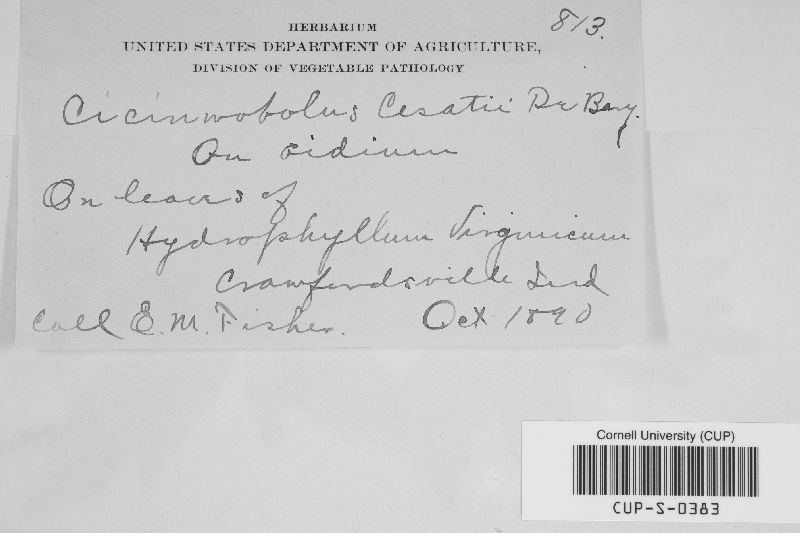 813.
HERBARIUM
UNITED STATES DEPARTMENT OF AGRICULTURE,
DIVISION OF VEGETABLE PATHOLOGY
Cicinnobolus Cesatii De Bary.
On oidium
On leaves of
Hydrophyllum Virginicum
Crawfordsville Ind
Coll E. M. Fisher. Oct 1890
Cornell University (CUP)
CUP-S-0383